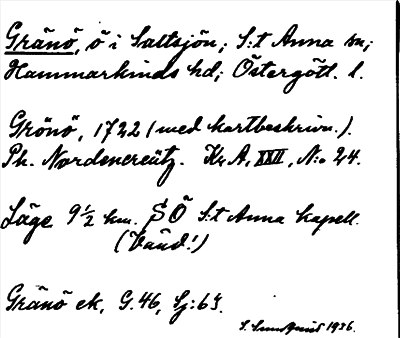 Gränö, ö i Saltsjön; S:t Anna sn;
Hammarkinds hd; Östergötl. l.
Grönö, 1722 (med kartbeskrivn.).
Ph. Nordencreütz. Kr. A, XXII, N:o 24.
Läge 9 1/2 km. SÖ S:t Anna kapell.
(Vänd!)
Gränö ek, G. 46, Sj: 64.
S. 1936.